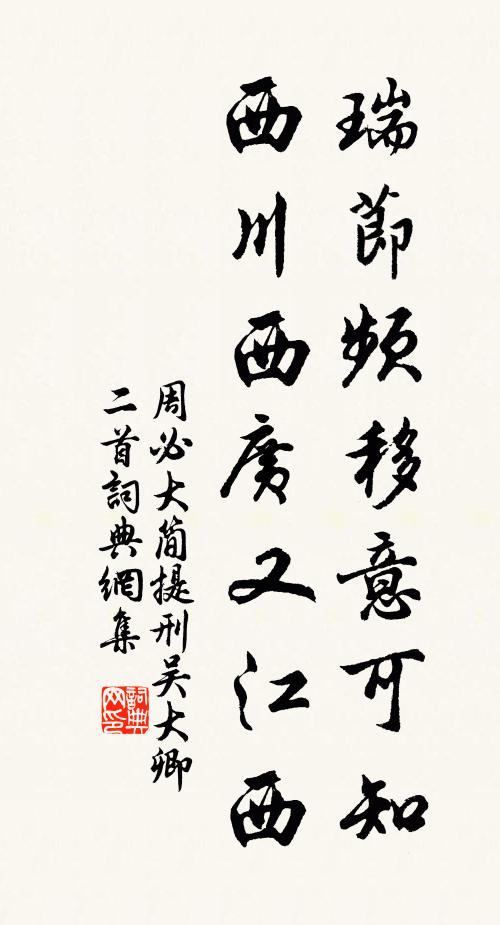 瑞節頻移意可知
西川西廣又江西
周必大简提刑吴大卿
二首詞典網集
詞典网印